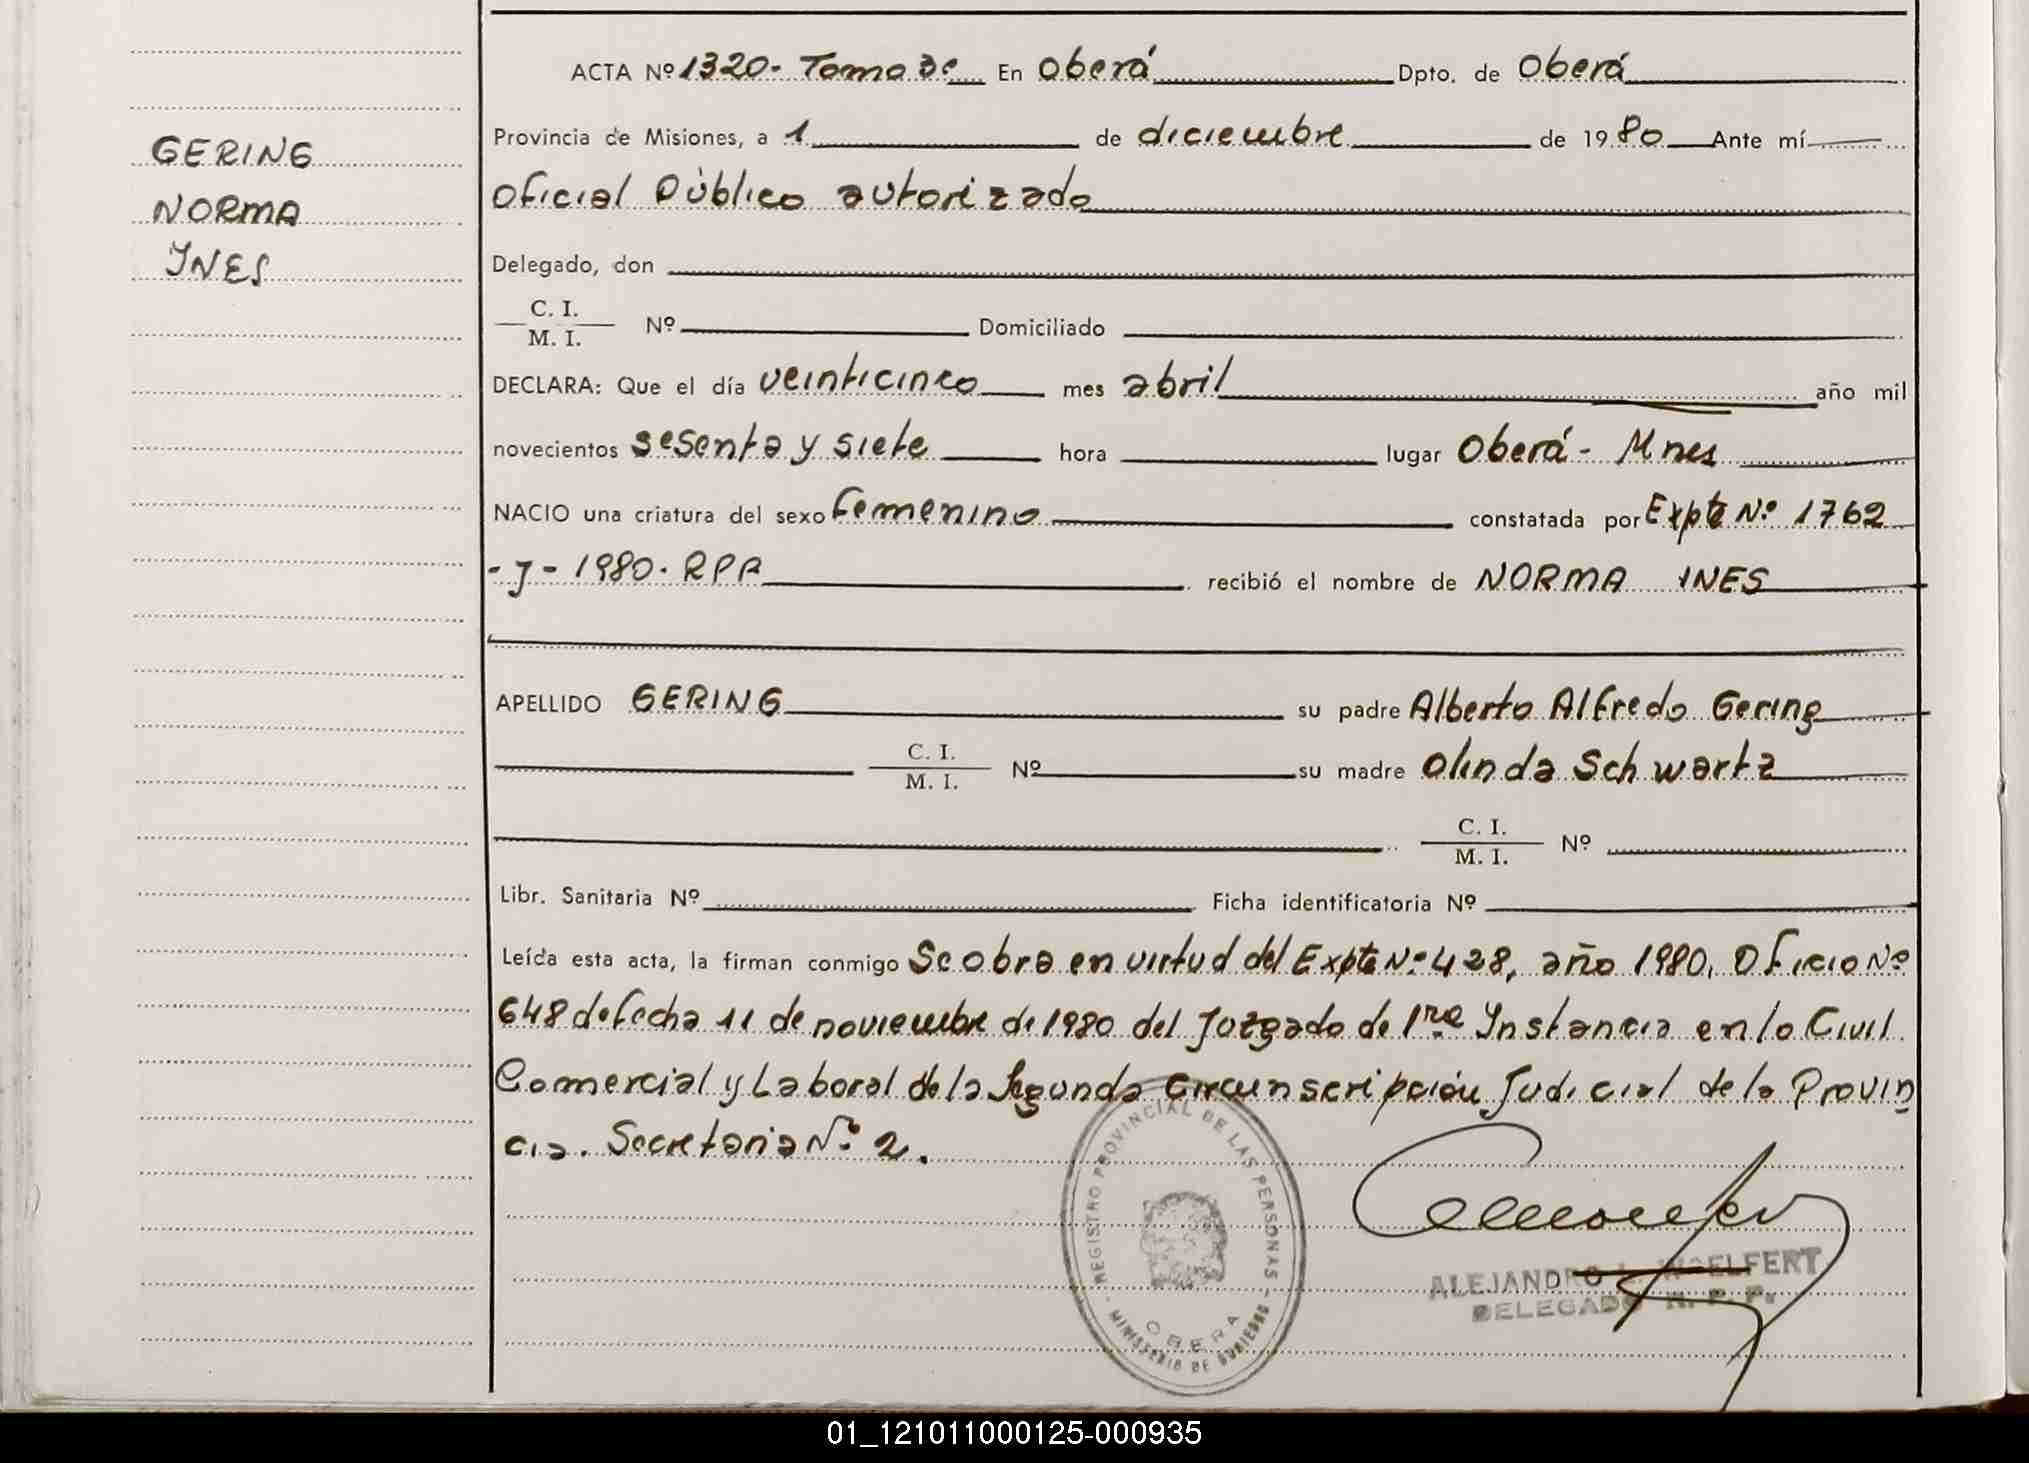 ACTA Nº 1320- Tomo 3º En Oberá Dpto. de Oberá
Provincia de Misiones, a 1 de diciembre de 1980 Ante mí
GERING
Oficial Público autorizado
NORMA
INES
Delegado, don
C. I.
M. I. Nº Domiciliado
DECLARA: Que el día veinticinco mes abril año mil
novecientos sesenta y siete hora lugar Oberá - Mnes
NACIO una criatura del sexo femenino constatada por Expte Nº 1762
-J- 1980. RPP recibió el nombre de NORMA INES
APELLIDO GERING su padre Alberto Alfredo Gering
C. I.
M. I. Nº su madre Olinda Schwartz
C. I.
M. I. Nº
Libr. Sanitaria Nº Ficha identificatoria Nº
Leída esta acta, la firman conmigo Se obra en virtud del Expte Nº 428, año 1980, Oficio Nº
648 de fecha 11 de noviembre de 1980 del Juzgado de 1ra Instancia en lo Civil
Comercial y Laboral de la Segunda Circunscripción Judicial de la Provin
cia. Secretaria Nº 2.
REGISTRO PROVINCIAL DE LAS PERSONAS
OBERA
MINISTERIO DE GOBIERNO
ALEJANDRO L. WOELFERT
DELEGADO R. P. P.
01_121011000125-000935